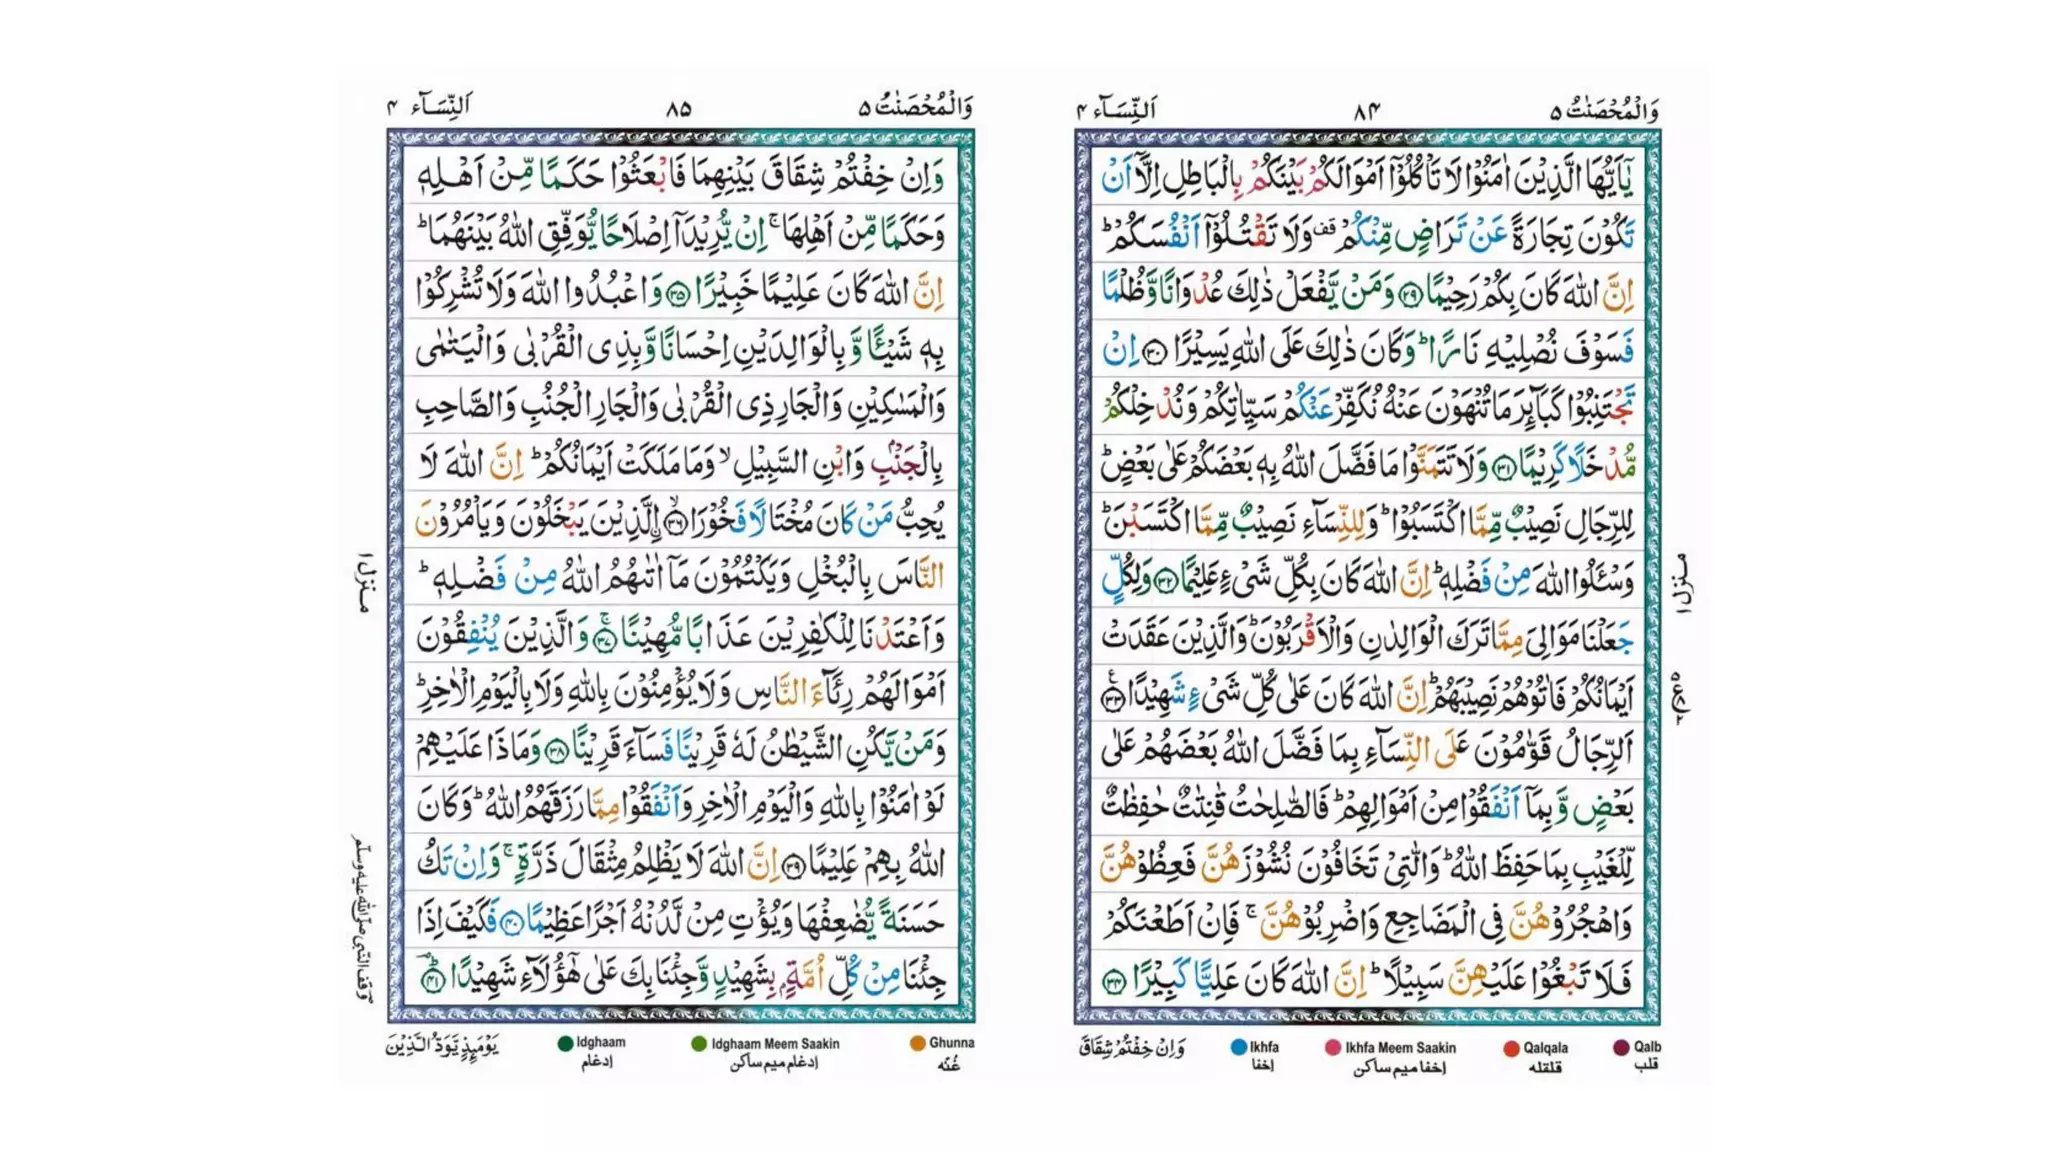 وَالْمُحْصَنٰتُ ۵
۸۴
اَلنِّسَآء ۴
يٰۤاَيُّهَا الَّذِيْنَ اٰمَنُوْا لَا تَاْكُلُوْۤا اَمْوَالَكُمْ بَيْنَكُمْ بِالْبَاطِلِ اِلَّاۤ اَنْ
تَكُوْنَ تِجَارَةً عَنْ تَرَاضٍ مِّنْكُمْ قف وَلَا تَقْتُلُوْۤا اَنْفُسَكُمْ ؕ
اِنَّ اللّٰهَ كَانَ بِكُمْ رَحِيْمًا ﴿۲۹﴾ وَمَنْ يَّفْعَلْ ذٰلِكَ عُدْوَانًا وَّظُلْمًا
فَسَوْفَ نُصْلِيْهِ نَارًا ؕ وَكَانَ ذٰلِكَ عَلَى اللّٰهِ يَسِيْرًا ﴿۳۰﴾ اِنْ
تَجْتَنِبُوْا كَبَآئِرَ مَا تُنْهَوْنَ عَنْهُ نُكَفِّرْ عَنْكُمْ سَيِّاٰتِكُمْ وَنُدْخِلْكُمْ
مُّدْخَلًا كَرِيْمًا ﴿۳۱﴾ وَلَا تَتَمَنَّوْا مَا فَضَّلَ اللّٰهُ بِهٖ بَعْضَكُمْ عَلٰى بَعْضٍ ؕ
لِلرِّجَالِ نَصِيْبٌ مِّمَّا اكْتَسَبُوْا ؕ وَلِلنِّسَآءِ نَصِيْبٌ مِّمَّا اكْتَسَبْنَ ؕ
وَسْئَلُوا اللّٰهَ مِنْ فَضْلِهٖ ؕ اِنَّ اللّٰهَ كَانَ بِكُلِّ شَىْءٍ عَلِيْمًا ﴿۳۲﴾ وَلِكُلٍّ
جَعَلْنَا مَوَالِىَ مِمَّا تَرَكَ الْوَالِدٰنِ وَالْاَقْرَبُوْنَ ؕ وَالَّذِيْنَ عَقَدَتْ
اَيْمَانُكُمْ فَاٰتُوْهُمْ نَصِيْبَهُمْ ؕ اِنَّ اللّٰهَ كَانَ عَلٰى كُلِّ شَىْءٍ شَهِيْدًا ﴿۳۳﴾
اَلرِّجَالُ قَوّٰمُوْنَ عَلَى النِّسَآءِ بِمَا فَضَّلَ اللّٰهُ بَعْضَهُمْ عَلٰى
بَعْضٍ وَّبِمَاۤ اَنْفَقُوْا مِنْ اَمْوَالِهِمْ ؕ فَالصّٰلِحٰتُ قٰنِتٰتٌ حٰفِظٰتٌ
لِّلْغَيْبِ بِمَا حَفِظَ اللّٰهُ ؕ وَالّٰتِىْ تَخَافُوْنَ نُشُوْزَهُنَّ فَعِظُوْهُنَّ
وَاهْجُرُوْهُنَّ فِى الْمَضَاجِعِ وَاضْرِبُوْهُنَّ ۚ فَاِنْ اَطَعْنَكُمْ
فَلَا تَبْغُوْا عَلَيْهِنَّ سَبِيْلًا ؕ اِنَّ اللّٰهَ كَانَ عَلِيًّا كَبِيْرًا ﴿۳۴﴾
منزل ۱
Qalb
قلب
Qalqala
قلقله
Ikhfa Meem Saakin
اخفا ميم ساكن
Ikhfa
اخفا
وَاِنْ خِفْتُمْ شِقَاقَ
وَالْمُحْصَنٰتُ ۵
۸۵
اَلنِّسَآء ۴
وَاِنْ خِفْتُمْ شِقَاقَ بَيْنِهِمَا فَابْعَثُوْا حَكَمًا مِّنْ اَهْلِهٖ
وَحَكَمًا مِّنْ اَهْلِهَا ۚ اِنْ يُّرِيْدَاۤ اِصْلَاحًا يُّوَفِّقِ اللّٰهُ بَيْنَهُمَا ؕ
اِنَّ اللّٰهَ كَانَ عَلِيْمًا خَبِيْرًا ﴿۳۵﴾ وَاعْبُدُوا اللّٰهَ وَلَا تُشْرِكُوْا
بِهٖ شَيْئًا وَّ بِالْوَالِدَيْنِ اِحْسَانًا وَّ بِذِى الْقُرْبٰى وَالْيَتٰمٰى
وَالْمَسٰكِيْنِ وَالْجَارِ ذِى الْقُرْبٰى وَالْجَارِ الْجُنُبِ وَالصَّاحِبِ
بِالْجَنْۢبِ وَابْنِ السَّبِيْلِ ۙ وَمَا مَلَكَتْ اَيْمَانُكُمْ ؕ اِنَّ اللّٰهَ لَا
يُحِبُّ مَنْ كَانَ مُخْتَالًا فَخُوْرَا ﴿۳۶﴾ اۨلَّذِيْنَ يَبْخَلُوْنَ وَيَاْمُرُوْنَ
النَّاسَ بِالْبُخْلِ وَيَكْتُمُوْنَ مَاۤ اٰتٰهُمُ اللّٰهُ مِنْ فَضْلِهٖ ؕ
وَاَعْتَدْنَا لِلْكٰفِرِيْنَ عَذَابًا مُّهِيْنًا ﴿۳۷﴾ وَالَّذِيْنَ يُنْفِقُوْنَ
اَمْوَالَهُمْ رِئَآءَ النَّاسِ وَلَا يُؤْمِنُوْنَ بِاللّٰهِ وَلَا بِالْيَوْمِ الْاٰخِرِ ؕ
وَمَنْ يَّكُنِ الشَّيْطٰنُ لَهٗ قَرِيْنًا فَسَآءَ قَرِيْنًا ﴿۳۸﴾ وَمَاذَا عَلَيْهِمْ
لَوْ اٰمَنُوْا بِاللّٰهِ وَالْيَوْمِ الْاٰخِرِ وَاَنْفَقُوْا مِمَّا رَزَقَهُمُ اللّٰهُ ؕ وَكَانَ
اللّٰهُ بِهِمْ عَلِيْمًا ﴿۳۹﴾ اِنَّ اللّٰهَ لَا يَظْلِمُ مِثْقَالَ ذَرَّةٍ ۚ وَاِنْ تَكُ
حَسَنَةً يُّضٰعِفْهَا وَيُؤْتِ مِنْ لَّدُنْهُ اَجْرًا عَظِيْمًا ﴿۴۰﴾ فَكَيْفَ اِذَا
جِئْنَا مِنْ كُلِّ اُمَّةٍۭ بِشَهِيْدٍ وَّجِئْنَا بِكَ عَلٰى هٰۤؤُلَآءِ شَهِيْدًا ﴿۴۱﴾
منزل ۱
وقف النّبى صلّى اللّٰه عليه وسلّم
Ghunna
غُنّه
Idghaam Meem Saakin
ادغام ميم ساكن
Idghaam
ادغام
يَوْمَئِذٍ يَّوَدُّ الَّذِيْنَ